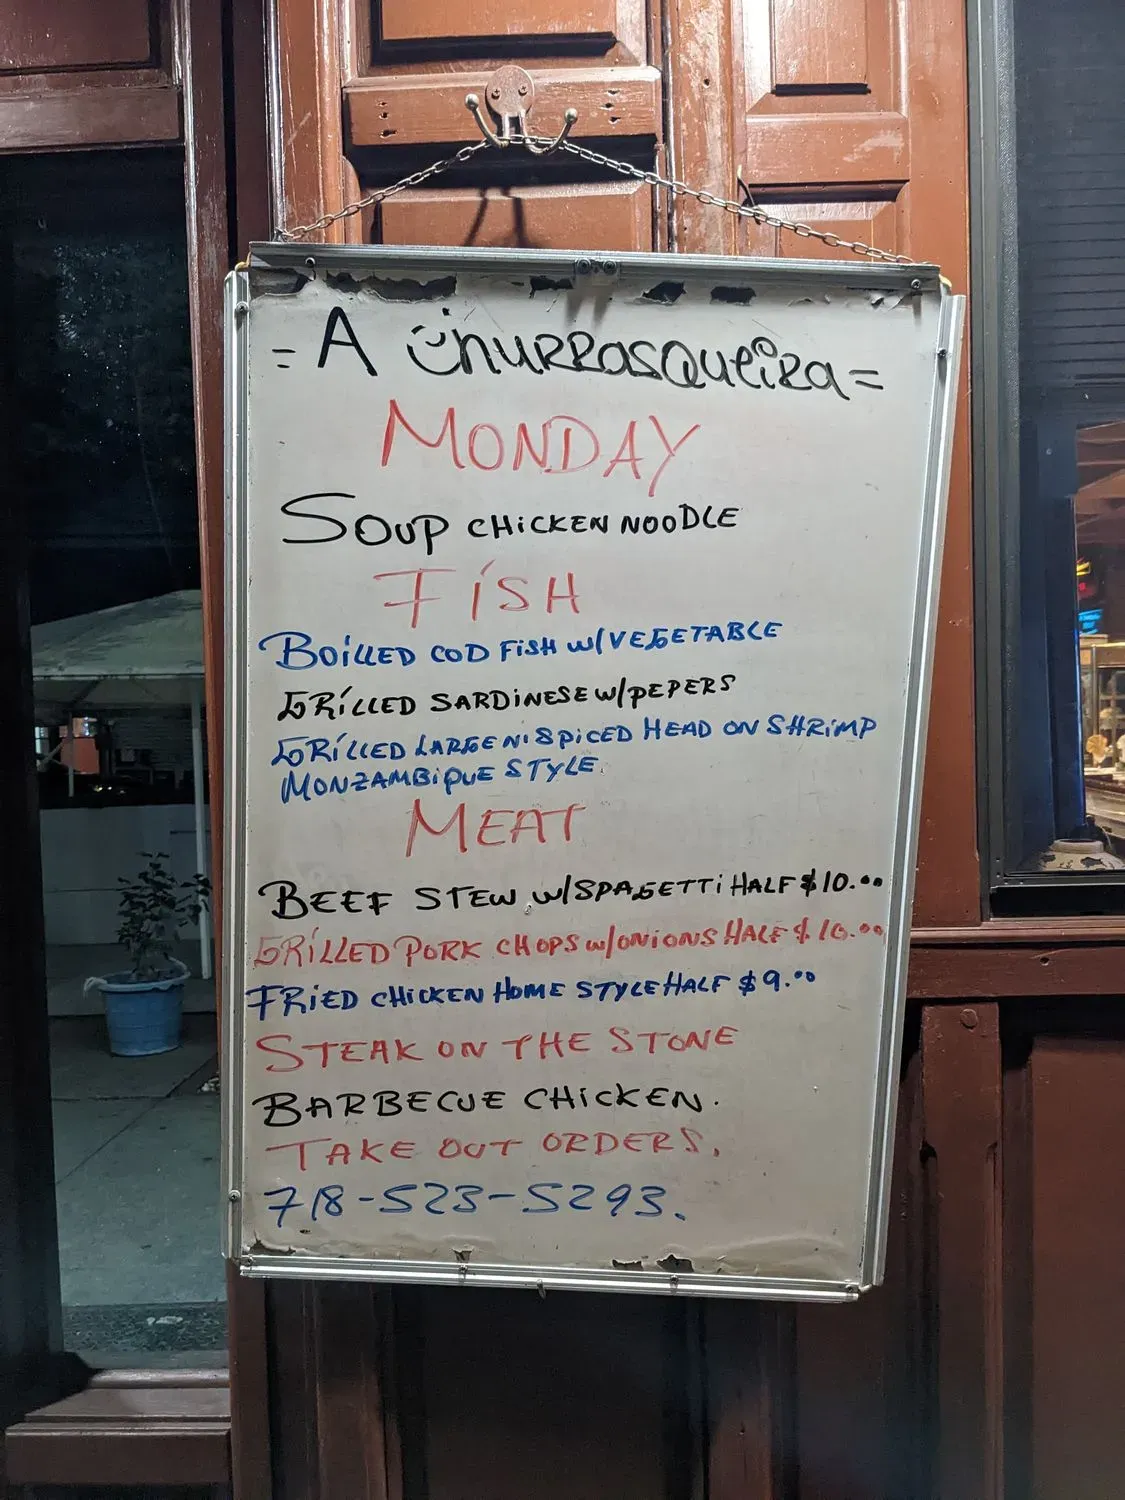 = A ChuRRasQueiRa =
MONDAY
SOUP CHiCKEN NOODLE
FiSH
BOiLLED COD FiSH W/VEGETABLE
GRiLLED SARDiNESE W/PEPERS
GRiLLED LARGE N' SPiCED HEAD ON SHRiMP
MONZAMBiQUE STYLE.
MEAT
BEEF STEW W/SPAGETTi HALF $10.00
GRiLLED PORK CHOPS W/ONiONS HALF $10.00
FRiED CHiCKEN HOME STYLE HALF $9.00
STEAK ON THE STONE
BARBECUE CHiCKEN.
TAKE OUT ORDERS.
718-523-5293.